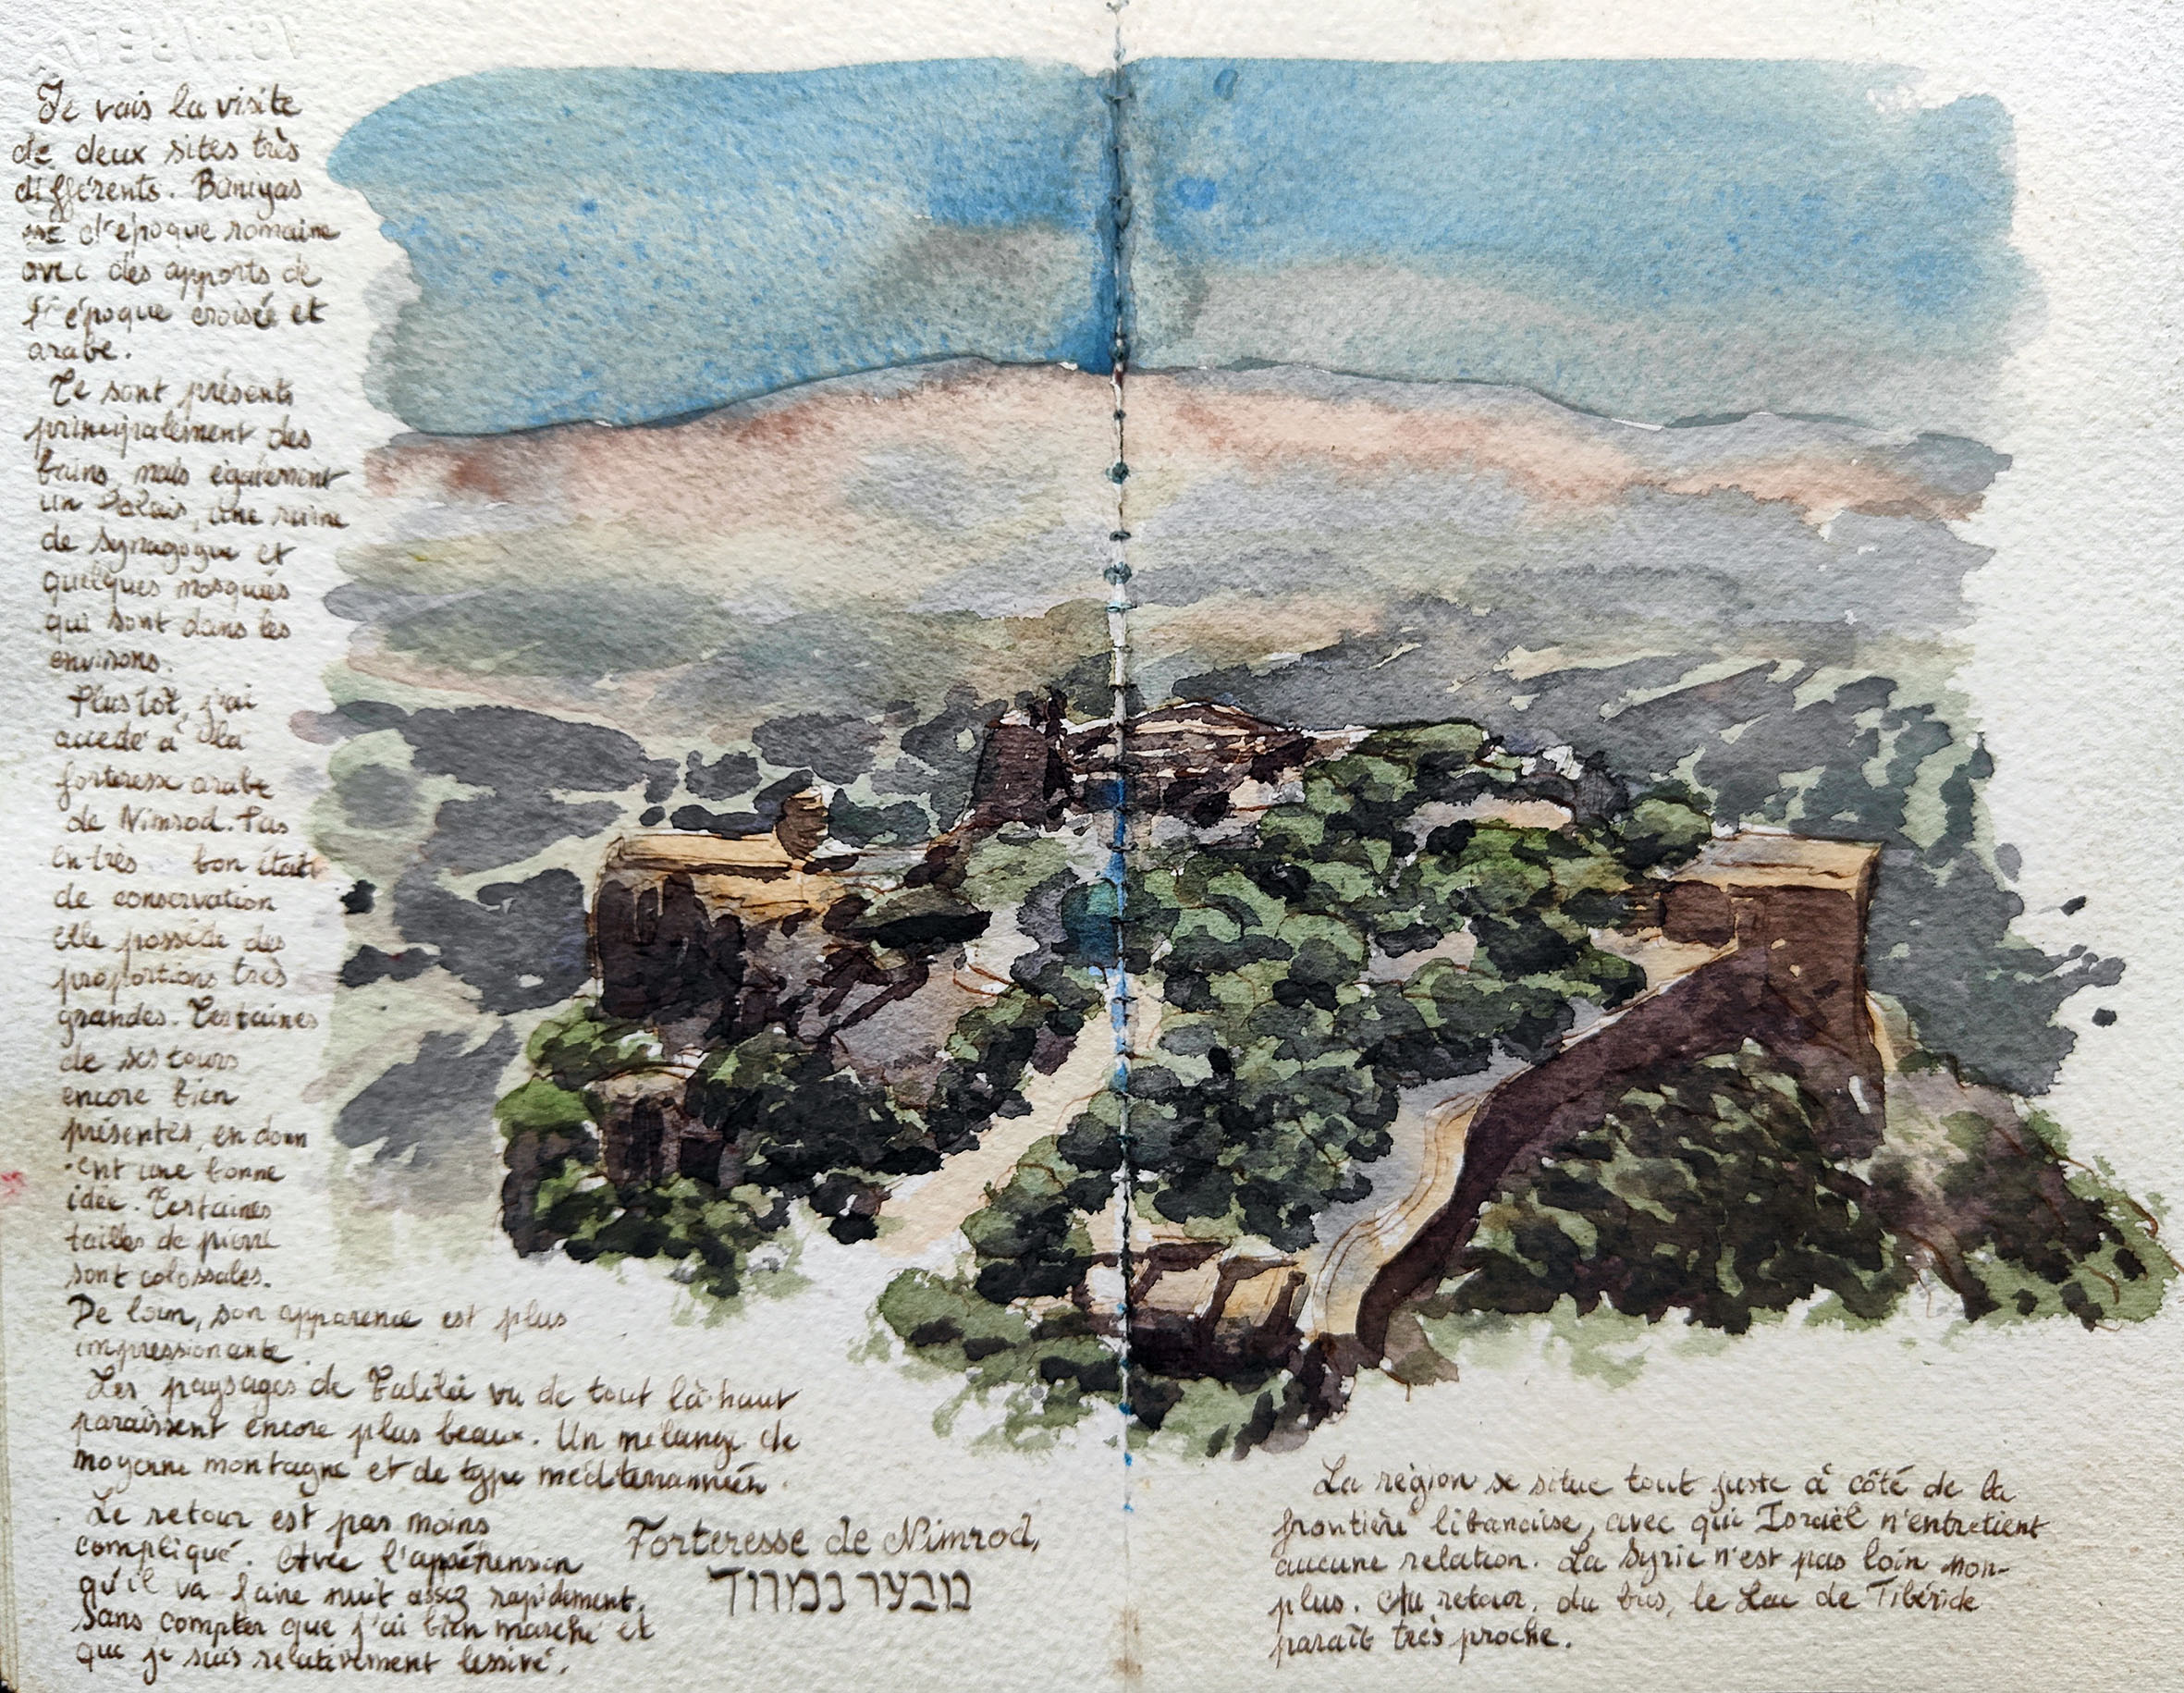 Je vais la visite
de deux sites très
différents. Baniyas
est d'époque romaine
avec des apports de
l'époque croisée et
arabe.
Ce sont présents
principalement des
bains, mais également
un Palais, une ruine
de Synagogue et
quelques mosquées
qui sont dans les
environs.
Plus tôt, j'ai
accédé à la
forteresse arabe
de Nimrod. Pas
en très bon état
de conservation
elle possède des
proportions très
grandes. Certaines
de ses tours
encore bien
présentes, en donn
-ent une bonne
idée. Certaines
tailles de pierre
sont colossales.
De loin, son apparence est plus
impressionante
Les paysages de Galilée vu de tout là-haut
paraissent encore plus beaux. Un mélange de
moyenne montagne et de type méditerrannéen.
Le retour est pas moins
compliqué. Avec l'appéhension
qu'il va faire nuit assez rapidement.
Sans compter que j'ai bien marché et
que je suis relativement lessivé.
Forteresse de Nimrod,
מבצר נמרוד
La région se situe tout juste à côté de la
frontière libanaise, avec qui Israël n'entretient
aucune relation. La Syrie n'est pas loin non-
plus. Au retour, du bus, le Lac de Tibéride
paraît très proche.